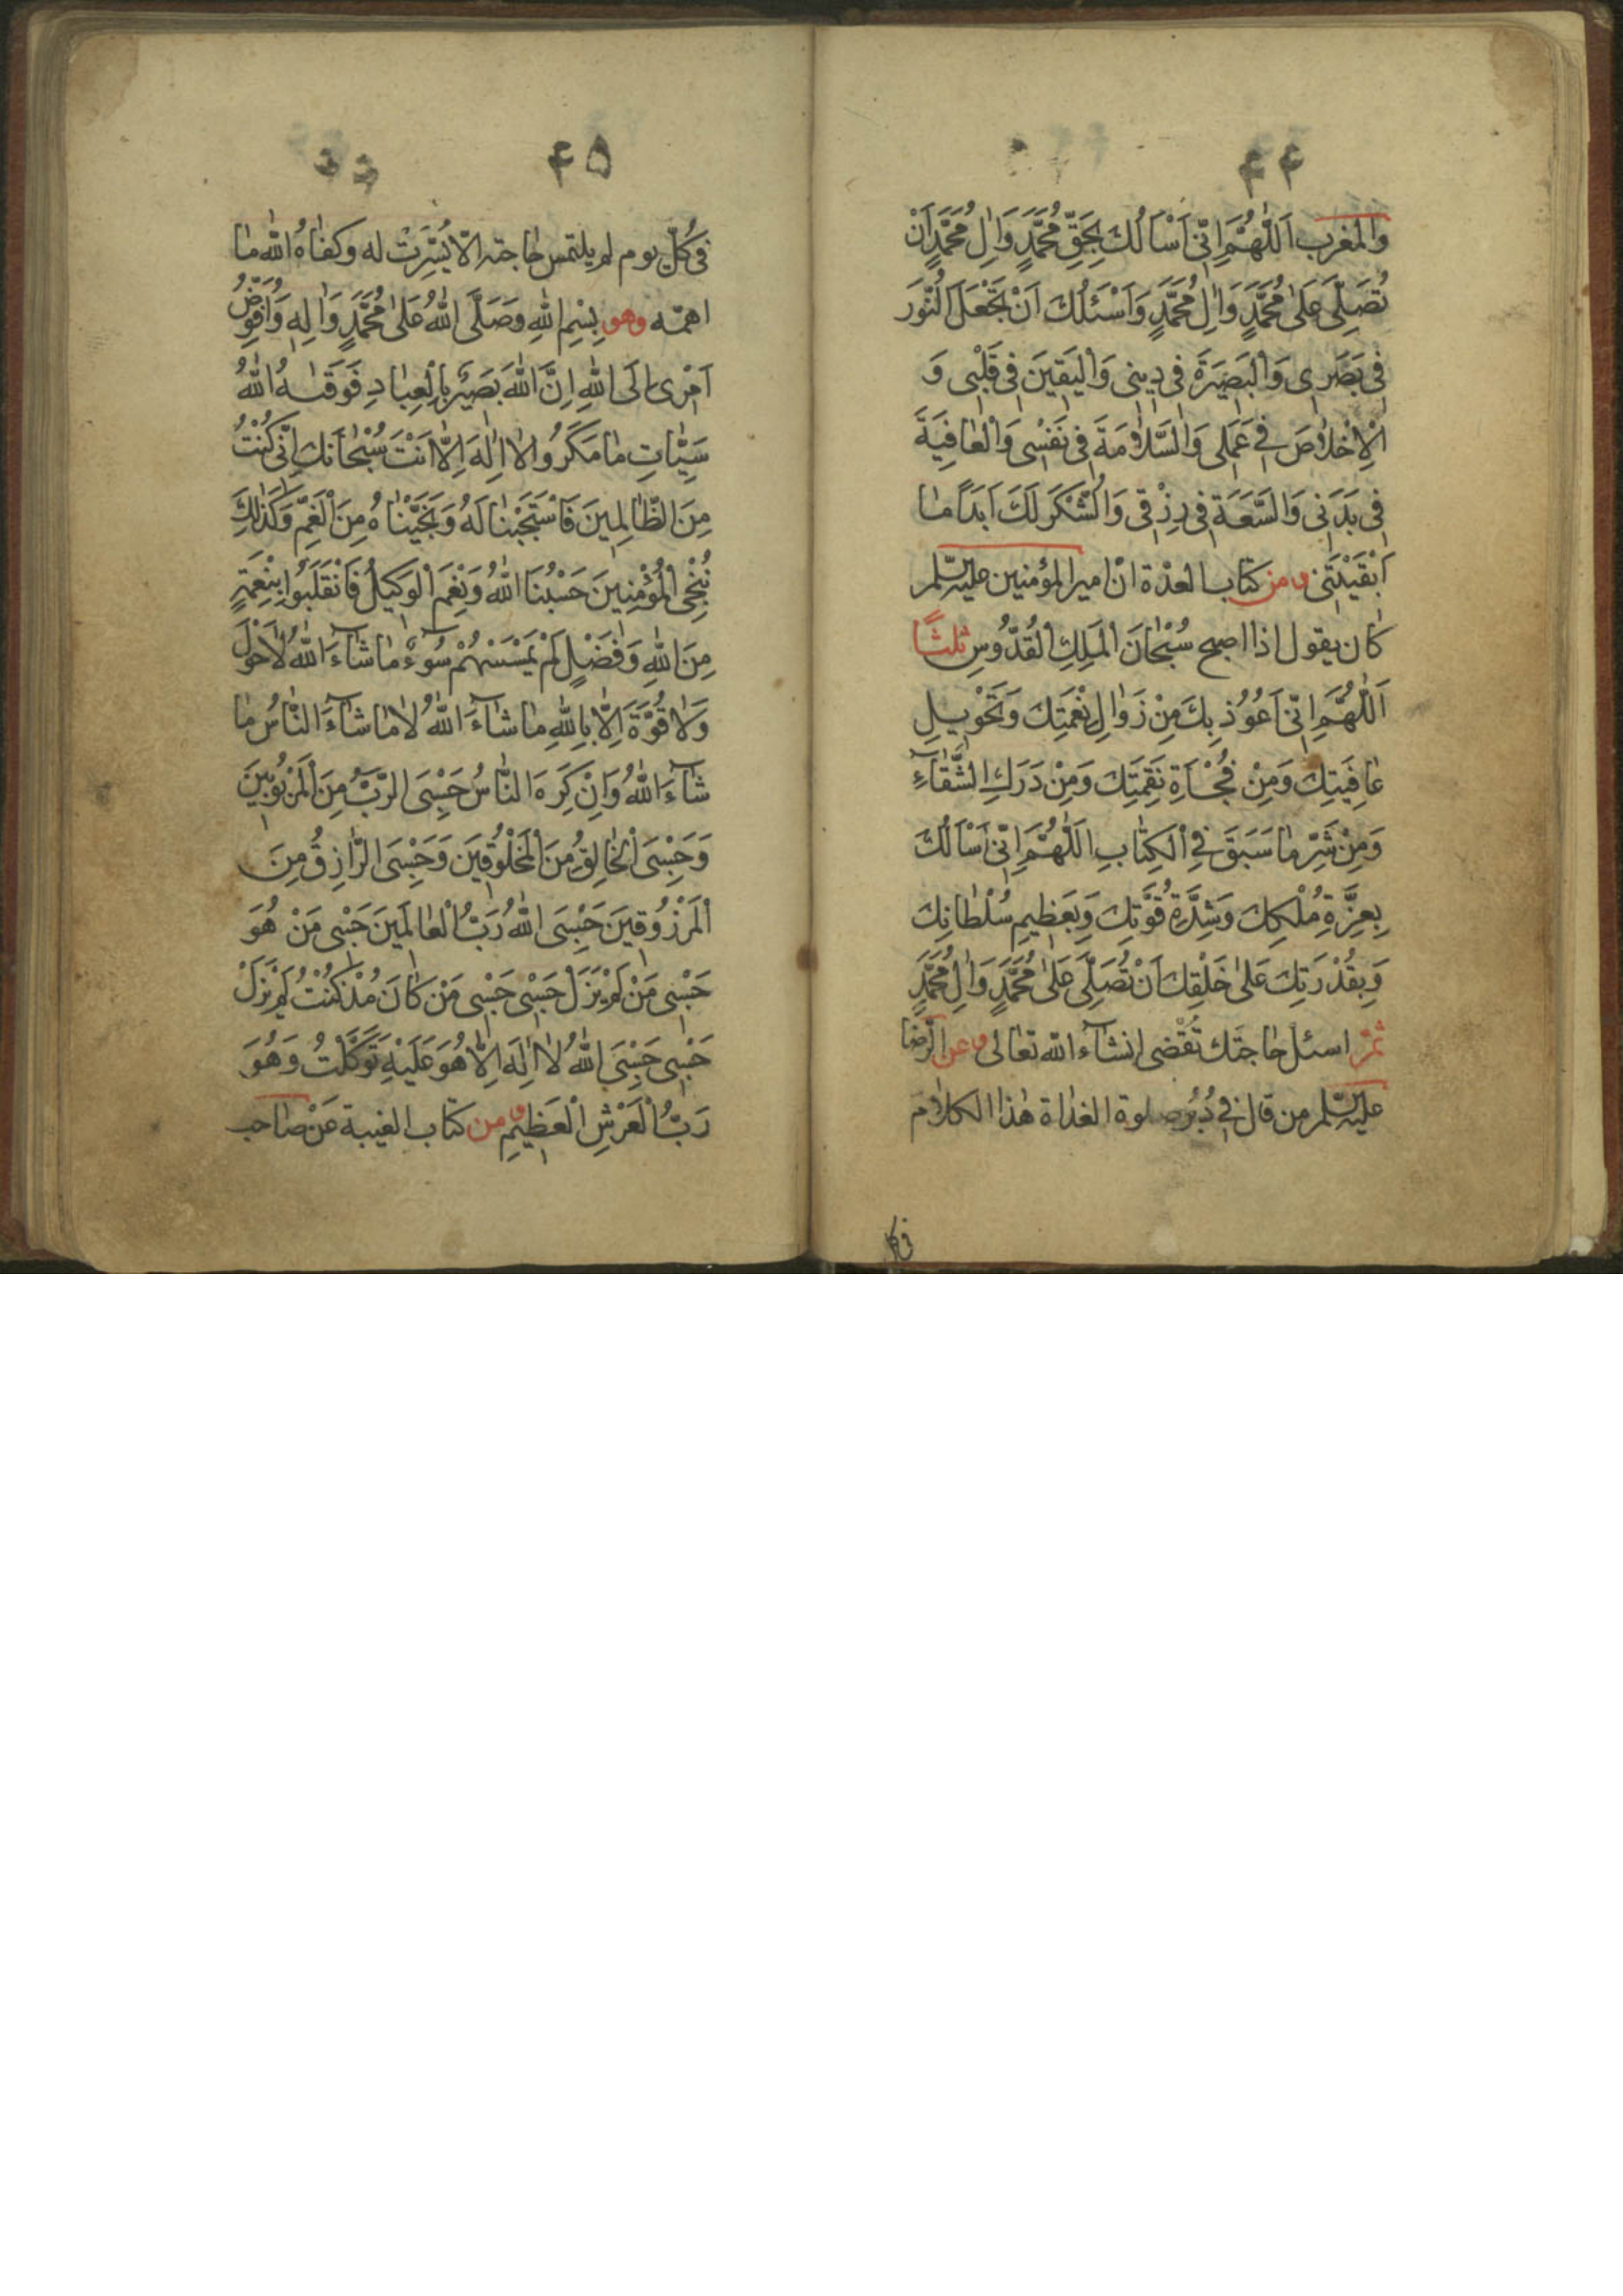 ۴۴
وَالمَغرب اَللّٰهُمَّ اِنّى اَسْاَلُكَ بِحَقِّ مُحَمَّدٍ وَاٰلِ مُحَمَّدٍ اَنْ
تُصَلِّىَ عَلىٰ مُحَمَّدٍ وَاٰلِ مُحَمَّدٍ وَاَسْئَلُكَ اَنْ تَجْعَلَ النُّوَر
فِى بَصَرِى وَالْبَصِيَرةَ فى دِينِى وَاْليَقِينَ فِى قَلْبِى وَ
اْلاِخْلاٰصَ فِى عَمَلِى وَالسَّلاٰمَةَ فِى نَفْسِى وَالْعٰافِيَةَ
فِى بَدَنِى وَالسَّعَةَ فِى رِزْقِى وَالشُّكْرَ لَكَ اَبَدًا مٰا
اَبْقَيْتَنِى و من كتاب العدة انّ امير المؤمنين عليه السّلم
كٰان يقول اذا اصبح سُبْحٰانَ اْلمَلِكِ اْلقُدُّوسِ ثلثًا
اَللّٰهُمَّ اِنّى اَعُوُذ بِكَ مِنْ زَوٰالِ نِعْمَتِكَ وَتَحْوِيلِ
عٰافِيَتِكَ وَمِنْ فُجْأَةِ نَقِمَتِكَ وَمِنْ دَرَكِ الشَّقٰآءِ
وَمِنْ شَرِّ مٰا سَبَقَ فِى اْلكِتٰابِ اَللّٰهُمَّ اِنّى اَسْاَلُكَ
بِعِزَّةِ مُلْكِكَ وَشِدَّةِ قُوَّتِكَ وَبِعَظِيمِ سُلْطٰانِكَ
وَبِقُدْرَتِكَ عَلىٰ خَلْقِكَ اَنْ تُصَلِّىَ عَلىٰ مُحَمَّدٍ وَاٰلِ مُحَمَّدٍ
ثمّ اسئل حٰاجتَك تُقْضى انشآء الله تعٰالى و عن الرّضا
عليه السّلم من قال فِى دُبُرِ صلوة الغدٰاة هٰذا الكلاٰم
فى كل
۴۵
فى كُلّ يوم لم يلتمس حٰاجته الّا يُسِّرَتْ له وكفٰاهُ الله مٰا
اهمّه وهو بِسْمِ اللهِ وَصَلَّى اللهُ عَلىٰ مُحَمَّدٍ وَاٰلِهِ وَاُفَوِّضُ
اَمْرِى اِلَى اللهِ اِنَّ اللهَ بَصِيٌر بِاْلعِبٰادِ فَوَقٰـهُ اللهُ
سَيِّئٰاتِ مٰا مَكَرُوا لاٰ اِلٰهَ اِلّٰا اَنْتَ سُبْحٰانَكَ اِنّى كُنْتُ
مِنَ الظّٰالِمِينَ فَاسْتَجَبْنٰا لَهُ وَنَجَّيْنٰاهُ مِنَ الْغَمِّ وَكَذٰلِكَ
نُنْجِى اْلمُؤْمِنِينَ حَسْبُنَا اللهُ وَنِعْمَ اْلوَكِيلُ فَانْقَلَبُوا بِنِعْمَةٍ
مِنَ اللهِ وَفَضْلٍ لَمْ يَمْسَسْهُمْ سُوٓءٌ مٰا شٰآءَ اللهُ لاٰ حَوْلَ
وَلاٰ قُوَّةَ اِلّٰا بِاللهِ مٰا شٰآءَ اللهُ لاٰ مٰا شٰآءَ النّٰاسُ مٰا
شٰآءَ اللهُ وَاِنْ كَرِهَ النّٰاسُ حَسْبِىَ الرَّبُّ مِنَ اْلمَرْبُوبِينَ
وَحَسْبِىَ اْلخٰالِقُ مِنَ اْلمَخْلُوقِينَ وَحَسْبِىَ الرّٰازِقُ مِنَ
اْلمَرْزُوقِينَ حَسْبِىَ اللهُ رَبُّ اْلعٰالَمِينَ حَسْبِى مَنْ هُوَ
حَسْبِى مَنْ لَمْ يَزَلْ حَسْبِى حَسْبِى مَنْ كٰانَ مُذْ كُنْتُ لَمْ يَزَلْ
حَسْبِى حَسْبِىَ اللهُ لاٰ اِلٰهَ اِلّٰا هُوَ عَلَيْهِ تَوَكَّلْتُ وَهُوَ
رَبُّ اْلعَرْشِ اْلعَظِيمِ و من كتاب الغيبة عَنْ صٰاحب